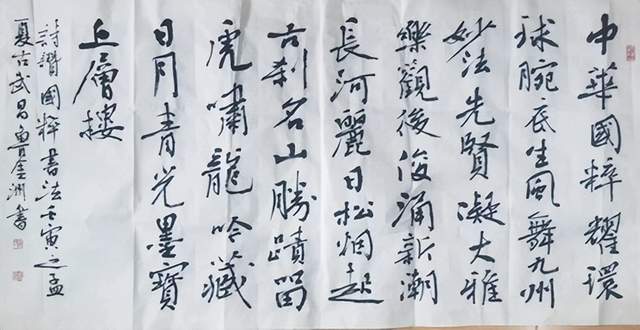 中華國粹耀環
球腕底生風舞九州
妙法先賢凝大雅
樂觀後俊涌新潮
長河麗日松烟起
古刹名山勝蹟留
虎嘯龍吟藏
日月青光墨寶
上層樓
詩讚國粹書法壬寅之孟
夏古武昌魯金洲書